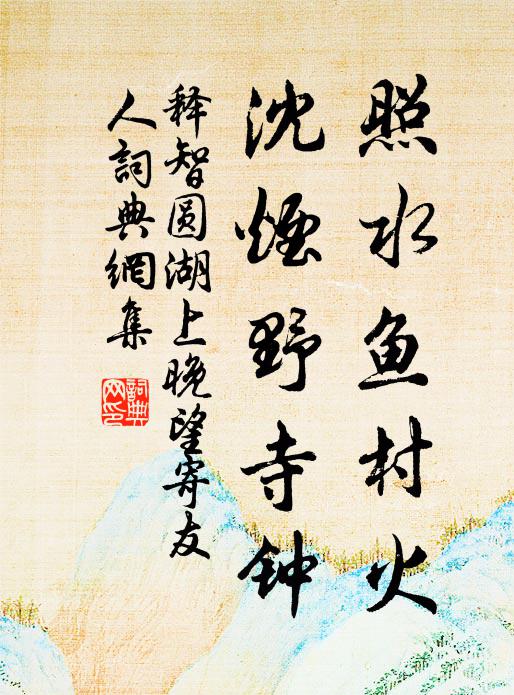 照水鱼村火
沈煙野寺钟
释智圆湖上晚望寄友
人詞典網集
詞典
网印